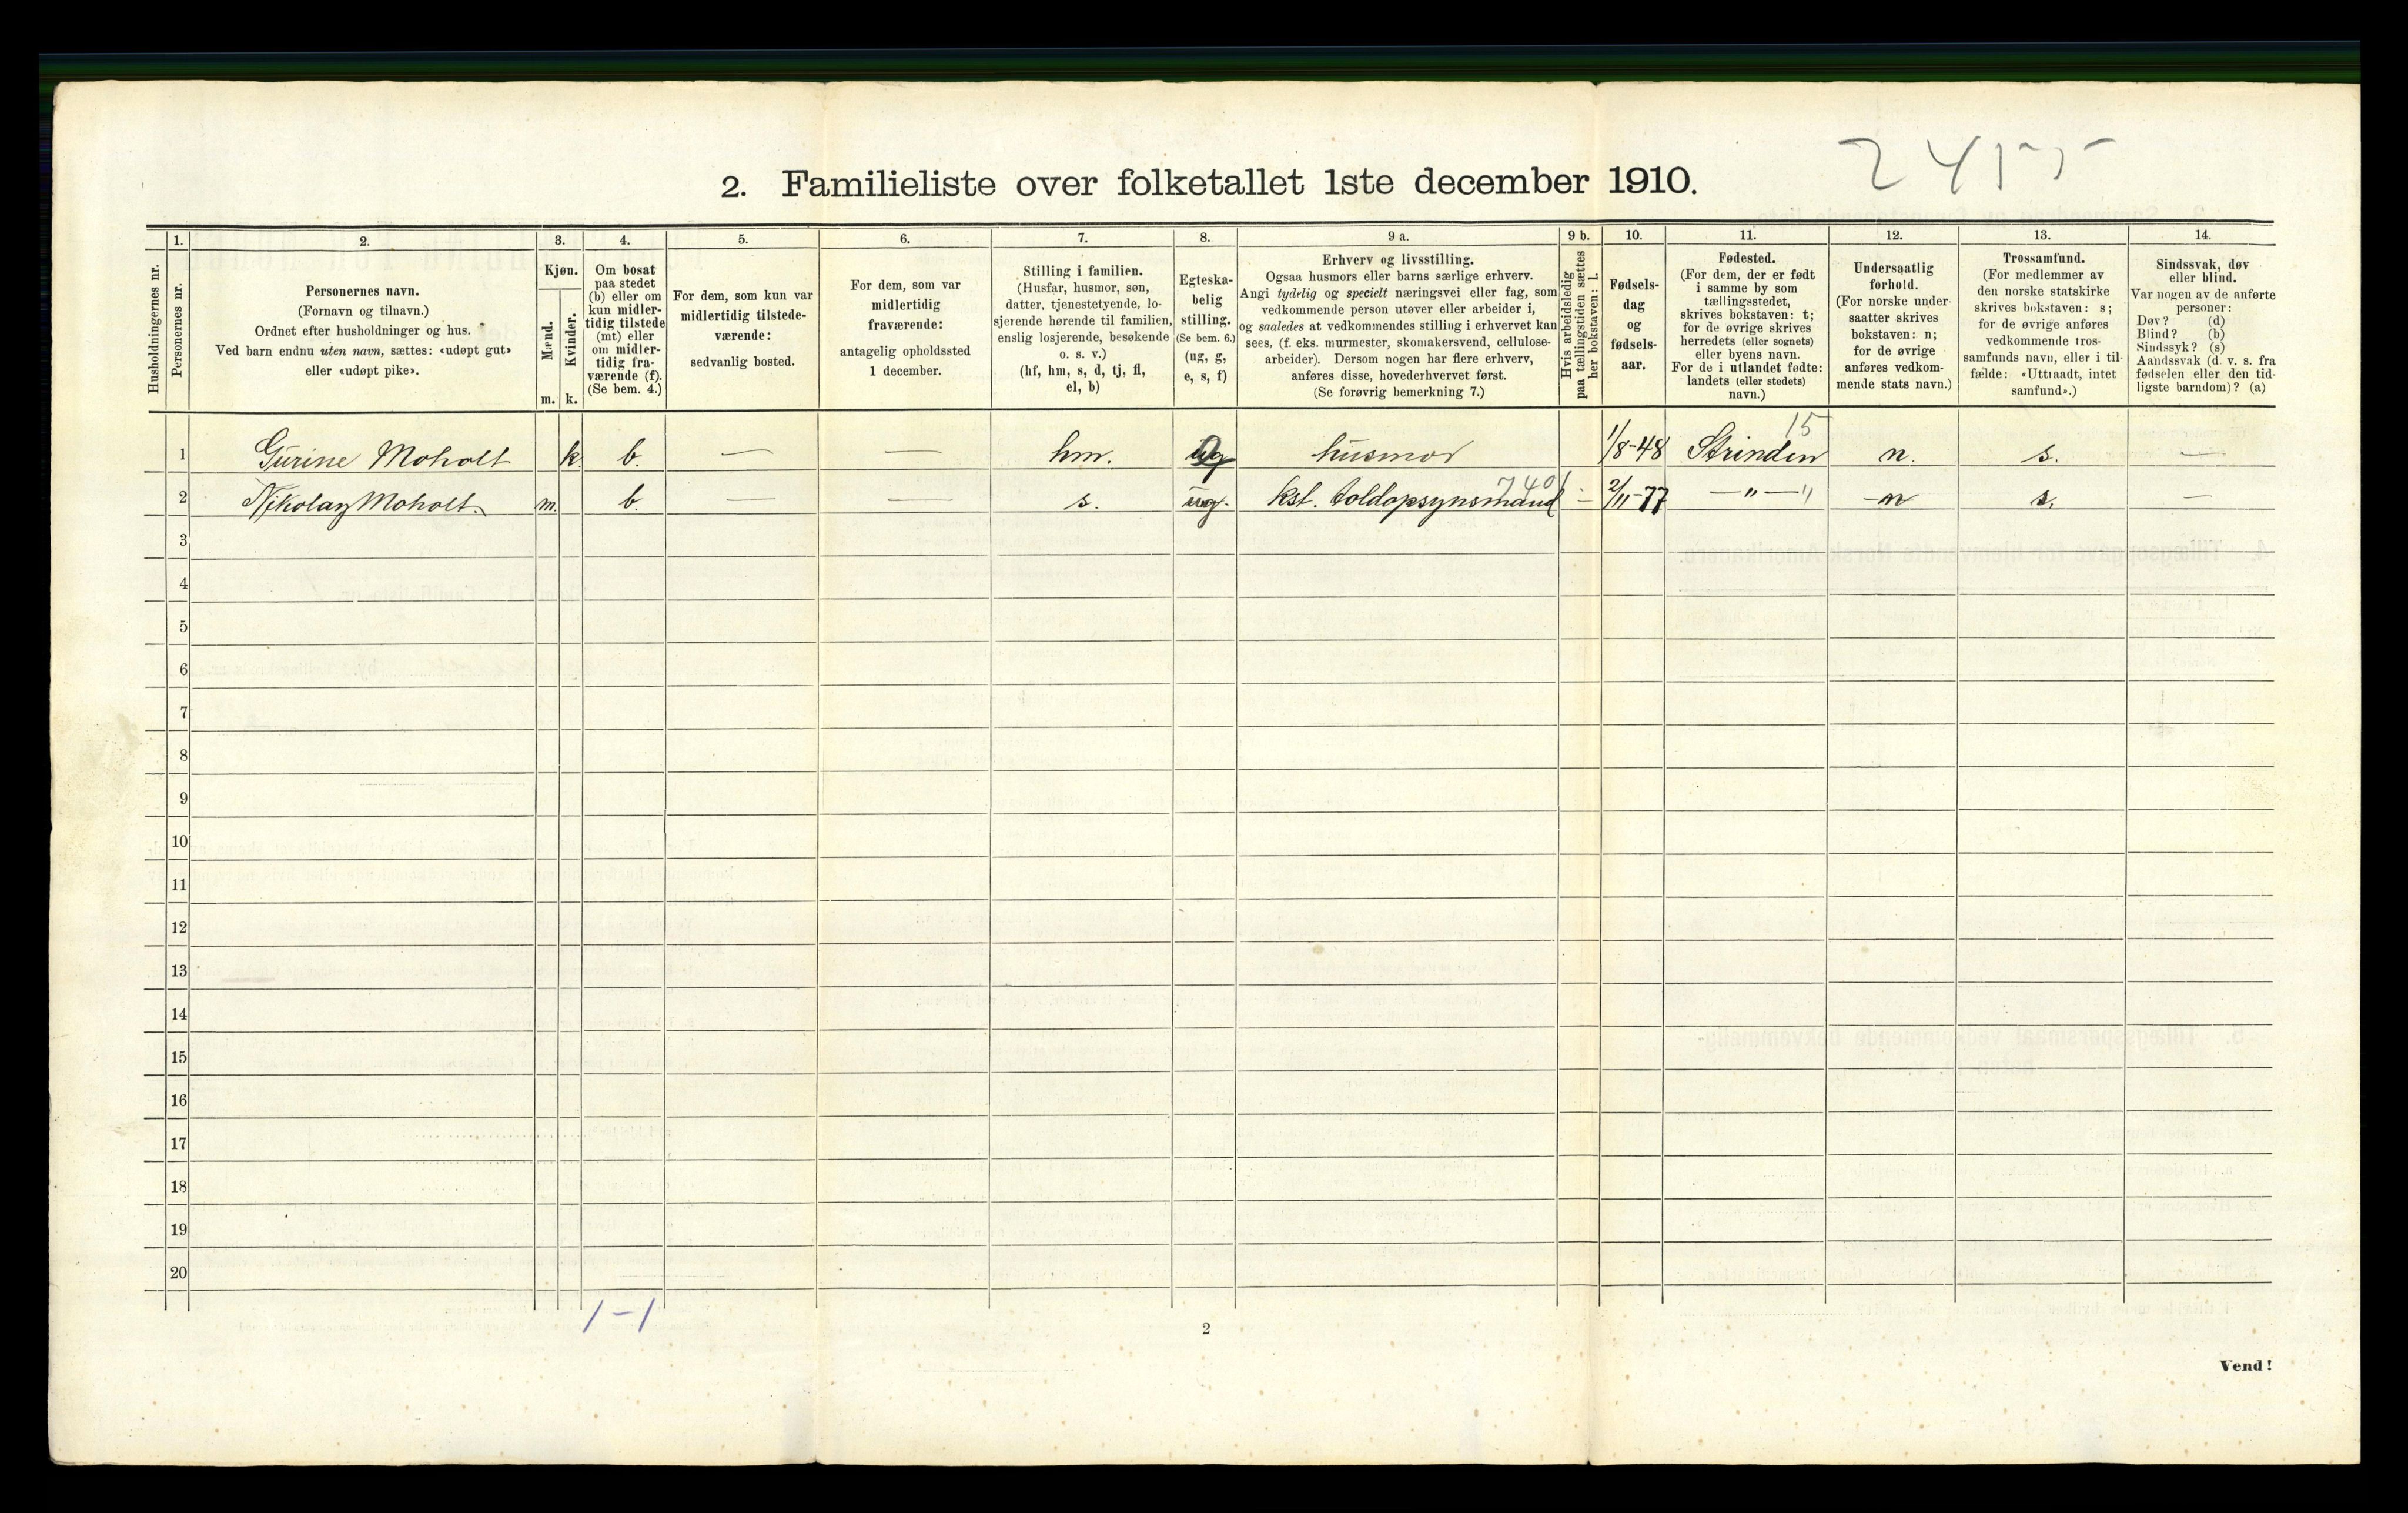 2455
2. Familieliste over folketallet 1ste december 1910.
1. 2. 3. 4. 5. 6. 7. 8. 9 a. 9 b. 10. 11. 12. 13. 14.
Husholdningernes nr.
Personernes nr.
Personernes navn.
(Fornavn og tilnavn.)
Ordnet efter husholdninger og hus.
Ved barn endnu uten navn, sættes: «udøpt gut»
eller «udøpt pike».
Kjøn.
Mænd.
Kvinder.
m. k.
Om bosat
paa stedet
(b) eller om
kun midler-
tidig tilstede
(mt) eller
om midler-
tidig fra-
værende (f).
(Se bem. 4.)
For dem, som kun var
midlertidig tilstede-
værende:
sedvanlig bosted.
For dem, som var
midlertidig
fraværende:
antagelig opholdssted
1 december.
Stilling i familien.
(Husfar, husmor, søn,
datter, tjenestetyende, lo-
sjerende hørende til familien,
enslig losjerende, besøkende
o. s. v.)
(hf, hm, s, d, tj, fl,
el, b)
Egteska-
belig
stilling.
(Se bem. 6.)
(ug, g,
e, s, f)
Erhverv og livsstilling.
Ogsaa husmors eller barns særlige erhverv.
Angi tydelig og specielt næringsvei eller fag, som
vedkommende person utøver eller arbeider i,
og saaledes at vedkommendes stilling i erhvervet kan
sees, (f. eks. murmester, skomakersvend, cellulose-
arbeider). Dersom nogen har flere erhverv,
anføres disse, hovederhvervet først.
(Se forøvrig bemerkning 7.)
Hvis arbeidsledig
paa tællingstiden sættes
her bokstaven: l.
Fødsels-
dag
og
fødsels-
aar.
Fødested.
(For dem, der er født
i samme by som
tællingsstedet,
skrives bokstaven: t;
for de øvrige skrives
herredets (eller sognets)
eller byens navn.
For de i utlandet fødte:
landets (eller stedets)
navn.)
Undersaatlig
forhold.
(For norske under-
saatter skrives
bokstaven: n;
for de øvrige
anføres vedkom-
mende stats navn.)
Trossamfund.
(For medlemmer av
den norske statskirke
skrives bokstaven: s;
for de øvrige anføres
vedkommende tros-
samfunds navn, eller i til-
fælde: «Uttraadt, intet
samfund».)
Sindssvak, døv
eller blind.
Var nogen av de anførte
personer:
Døv? (d)
Blind? (b)
Sindssyk? (s)
Aandssvak (d. v. s. fra
fødselen eller den tid-
ligste barndom)? (a)
15
1 Gurine Moholt k. b. — — hm. husmor 1/8-48 Strinden n. s. —
7401
2 Nikolay Moholt. m. b. — — s. ug. kst. toldopsynsmand — 2/11-77 —"—" n s. —
3
4
5
6
7
8
9
10
11
12
13
14
15
16
17
18
19
20
1-1
2
Vend!